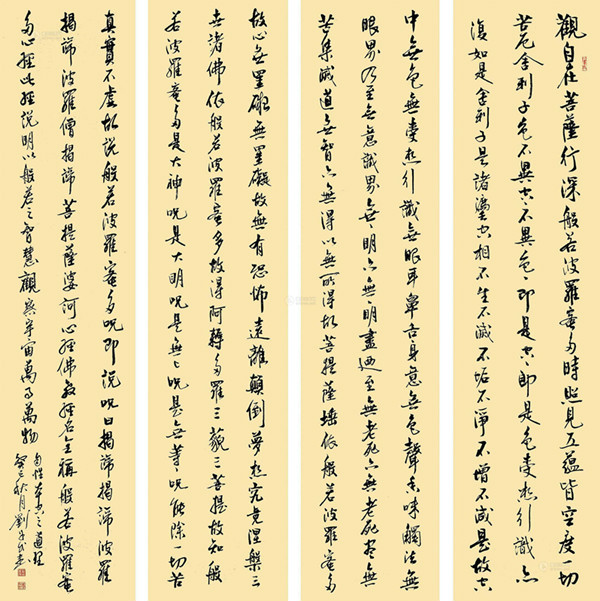 觀自在菩薩行深般若波羅蜜多時照見五蘊皆空度一切
苦厄舍利子色不異空々不異色々即是空々即是色受想行識亦
復如是舍利子是諸法空相不生不滅不垢不淨不增不減是故空
中無色無受想行識無眼耳鼻舌身意無色聲香味觸法無
眼界乃至無意識界無々明亦無々明盡迺至無老死亦無老死盡無
苦集滅道無智亦無得以無所得故菩提薩埵依般若波羅蜜多
故心無罣礙無罣礙故無有恐怖遠離顛倒夢想究竟涅槃三
世諸佛依般若波羅蜜多故得阿耨多羅三藐三菩提故知般
若波羅蜜多是大神咒是大明咒是無上咒是無等咒能除一切苦
真實不虛故說般若波羅蜜多咒即說咒曰揭諦揭諦波羅
揭諦波羅僧揭諦菩提薩婆訶心經佛教經名全稱般若波羅蜜
多心經此經說明以般若之智慧觀察宇宙萬事萬物
自性本空之道理
癸巳秋月劉子